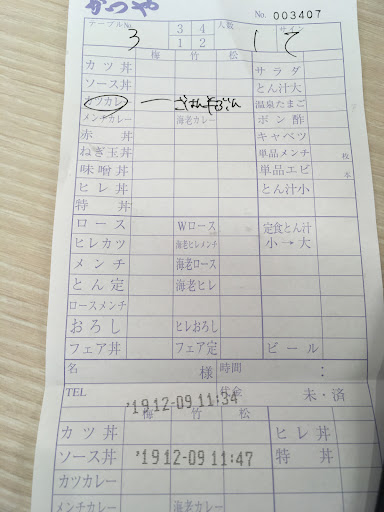 かつや
No. 003407
テーブルNo. 3 4 人数 サイン
3 1 2 1
梅 竹 松
カツ丼 サラダ
ソース丼 とん汁大
カツカレー 温泉たまご
メンチカレー 海老カレー ポン酢
赤丼 キャベツ
ねぎ玉丼 単品メンチ 枚
味噌丼 単品エビ 本
ヒレ丼 とん汁小
特丼
ロース Wロース 定食とん汁
ヒレカツ 海老ヒレメンチ 小→大
メンチ 海老ロース
とん定 海老ヒレ
ロースメンチ
おろし ヒレおろし
フェア丼 フェア定 ビール
名 様 時間 :
TEL 代金 未・済
'19 12-09 11:34
梅 竹 松
カツ丼 ヒレ丼
ソース丼 '19 12-09 11:47 特丼
カツカレー
メンチカレー 海老カレー